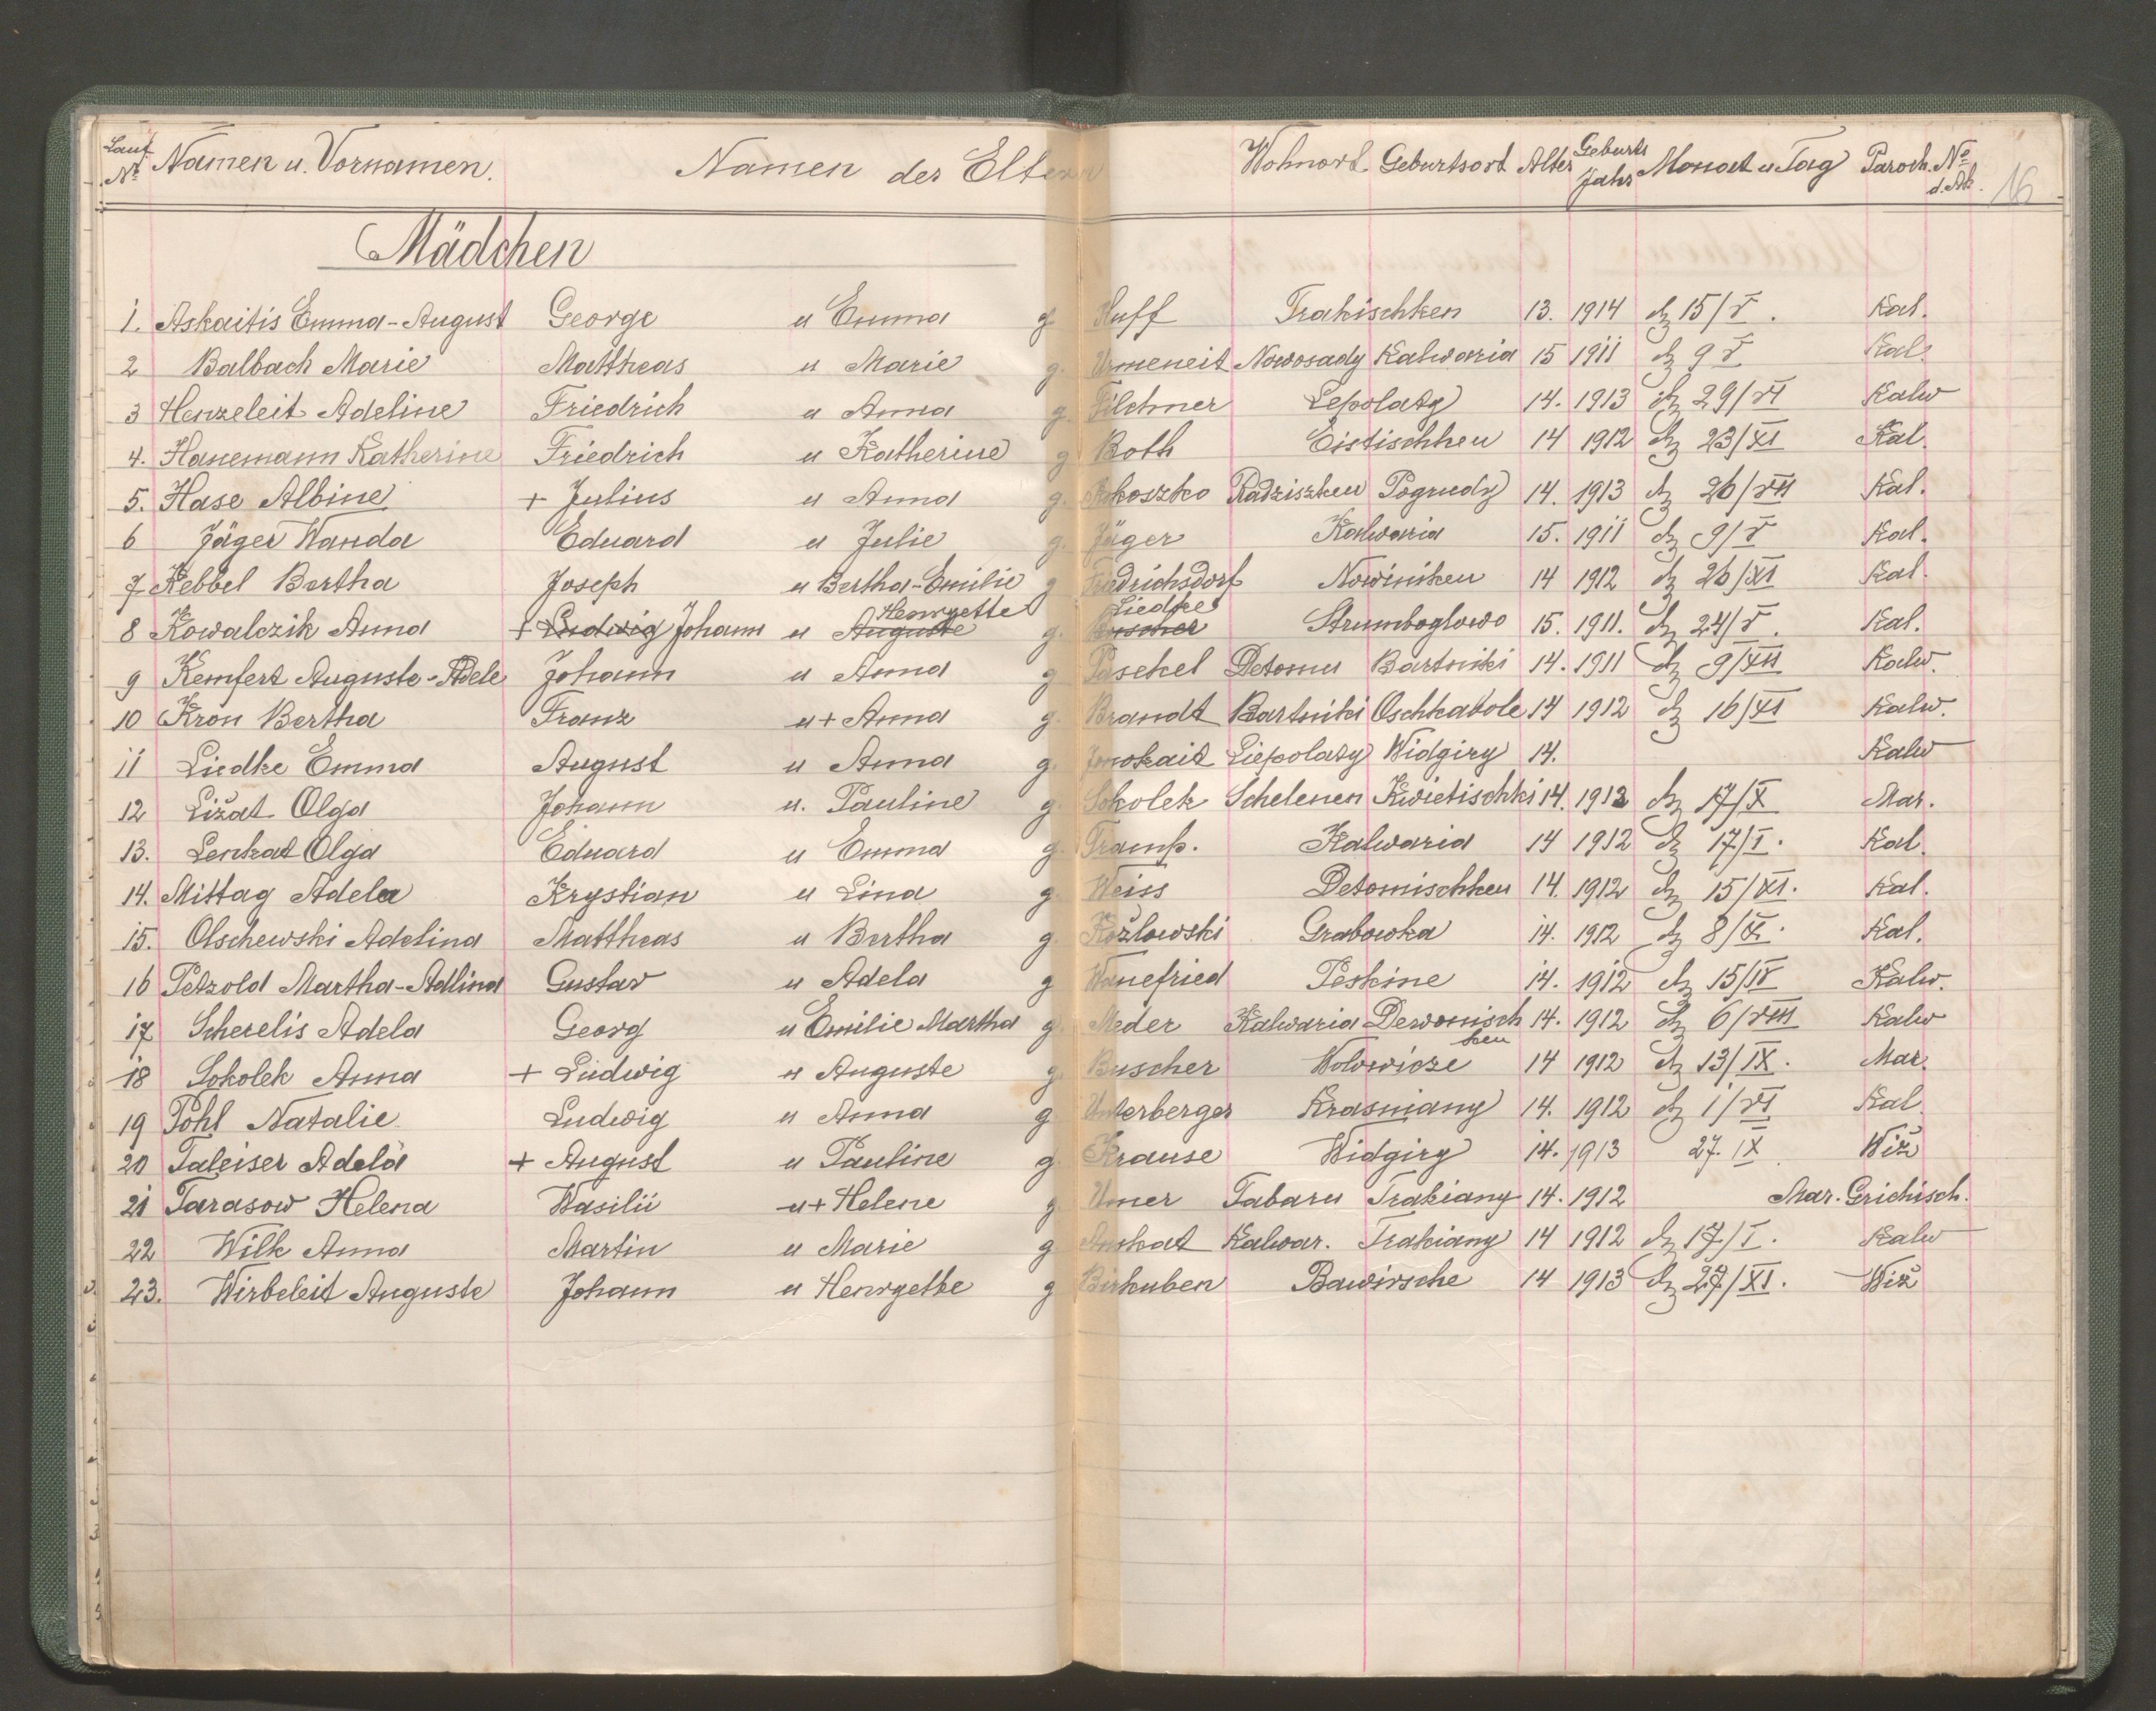 Lauf. No Namen u. Vornamen. Namen der Eltern Wohnort Geburtsort Alter Geburts Jahr Monat u Tag Paroch. No d. Ak. 16
Mädchen
1. Askaitis Emma-August George u Emma g. Huff Trakischken 13. 1914 15/V. Kal.
2 Balbach Marie Mattheas u Marie g. Urmeneit Nowosady Kalwaria 15 1911 9 V Kal.
3 Henzeleit Adeline Friedrich u Anna g. Filchner Lepolaty 14. 1913 29/VI Kalw
4. Hanemann Katherine Friedrich u Katherine g Both Eistischken 14 1912 23/XI Kal.
5. Hase Albine + Julius u Anna g. Radziszken Pogrudy 14. 1913 26/VII Kal.
6 Jäger Wanda Eduard u Julie g. Jäger Kalwaria 15. 1911 9/V Kal.
7 Kebbel Bertha Joseph u Bertha-Emilie g Friedrichsdorf Nowiniken 14 1912 26/XI Kal.
Henryette Liedtke
8 Kowalczik Anna + Ludwig Johann u Auguste g. Buscher Strumboglowo 15. 1911. 24/V. Kal.
9 Kemfert Auguste-Adele Johann u Anna g Paschel Detomu Bartniki 14. 1911 9/XII Kalw.
10 Kron Bertha Franz u + Anna g. Brandt Bartniki Oschkabole 14 1912 16/XI Kalw.
11 Liedke Emma August u Anna g. Jonokait Liepolaty Widgiry 14. Kalw
12 Ližat Olga Johann u. Pauline g. Sokolek Schelenen Kwietischki 14. 1912 17/X Mar.
13. Lenkat Olga Eduard u Emma g. Tramp. Kalwaria 14 1912 17/I. Kal.
14. Mittag Adela Krystian u Lina g. Weiss Detomischken 14. 1912 15/XI. Kal.
15. Olschewski Adelina Mattheas u Bertha g. Kožlowski Grabowka 14. 1912 8/X. Kal.
16 Petzold Martha-Adlina Gustav u Adela g Wanefried Peskine 14. 1912 15/IV Kalw.
17 Scherelis Adela Georg u Emilie Martha g. Meder Kalwaria Dewonisch 14. 1912 6/VIII Kalw
ken
18 Sokolek Anna + Ludwig u Auguste g. Buscher Wolowicze 14 1912 13/IX. Mar.
19 Pohl Natalie Ludwig u Anna g Unterberger Krasniany 14. 1912 1/VI Kal.
20 Taleiser Adela + August u Pauline g. Krause Widgiry 14. 1913 27. IX Wiž
21 Tarasow Helena Wasilii u + Helene g Umer Tabaru Trakiany 14. 1912 Mar. Grichisch.
22 Wilk Anna Martin u Marie g Anskat Kalwar. Trakiany 14 1912 17/I. Kalw
23. Wirbeleit Auguste Johann u Henryette g Birkuben Bawirsche 14 1913 27/XI. Wiž